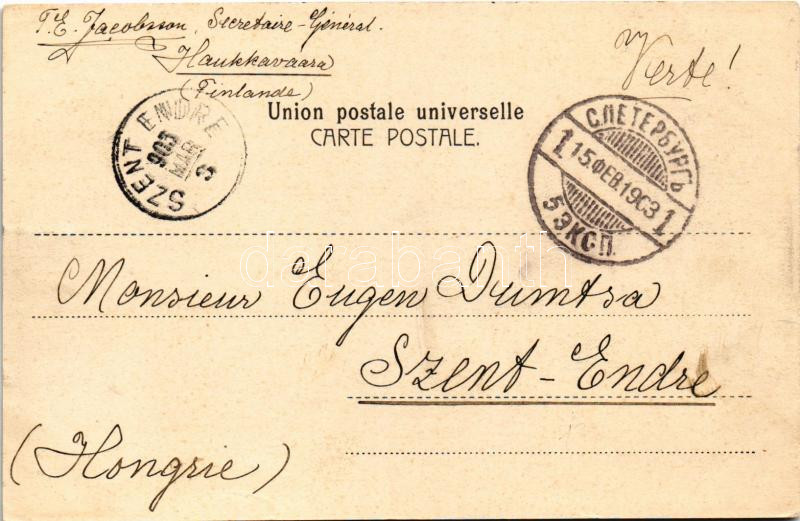 T.E. Jacobsson, Secretaire-Général.
Haukkavaara
(Finlande)
Verte!
Union postale universelle
CARTE POSTALE.
SZENT ENDRE
903
MAR
3
С.ПЕТЕРБУРГЪ
1 15.ФЕВ.1903 1
5 ЭКСП.
darabanth
Monsieur Eugen Dumtsa
Szent-Endre
(Hongrie)